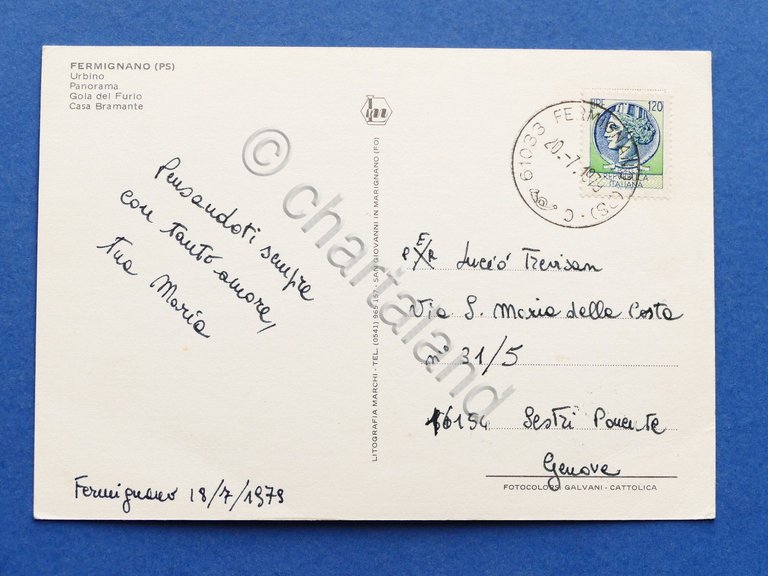 FERMIGNANO (PS)
Urbino
Panorama
Gola del Furlo
Casa Bramante
Pensandoti sempre
con tanto amore,
tua Maria
Fermignano 18/7/1979
LITOGRAFIA MARCHI - TEL. (0541) 965 157 - SAN GIOVANNI IN MARIGNANO (FO)
LIRE 120
REPUBBLICA
ITALIANA
61033 FERMIGNANO (PS) · C
20.-7.1979
Lucio Trevisan
Via S. Maria della Costa
n° 31/5
16154 Sestri Ponente
Genova
FOTOCOLORS GALVANI - CATTOLICA
© chartaland